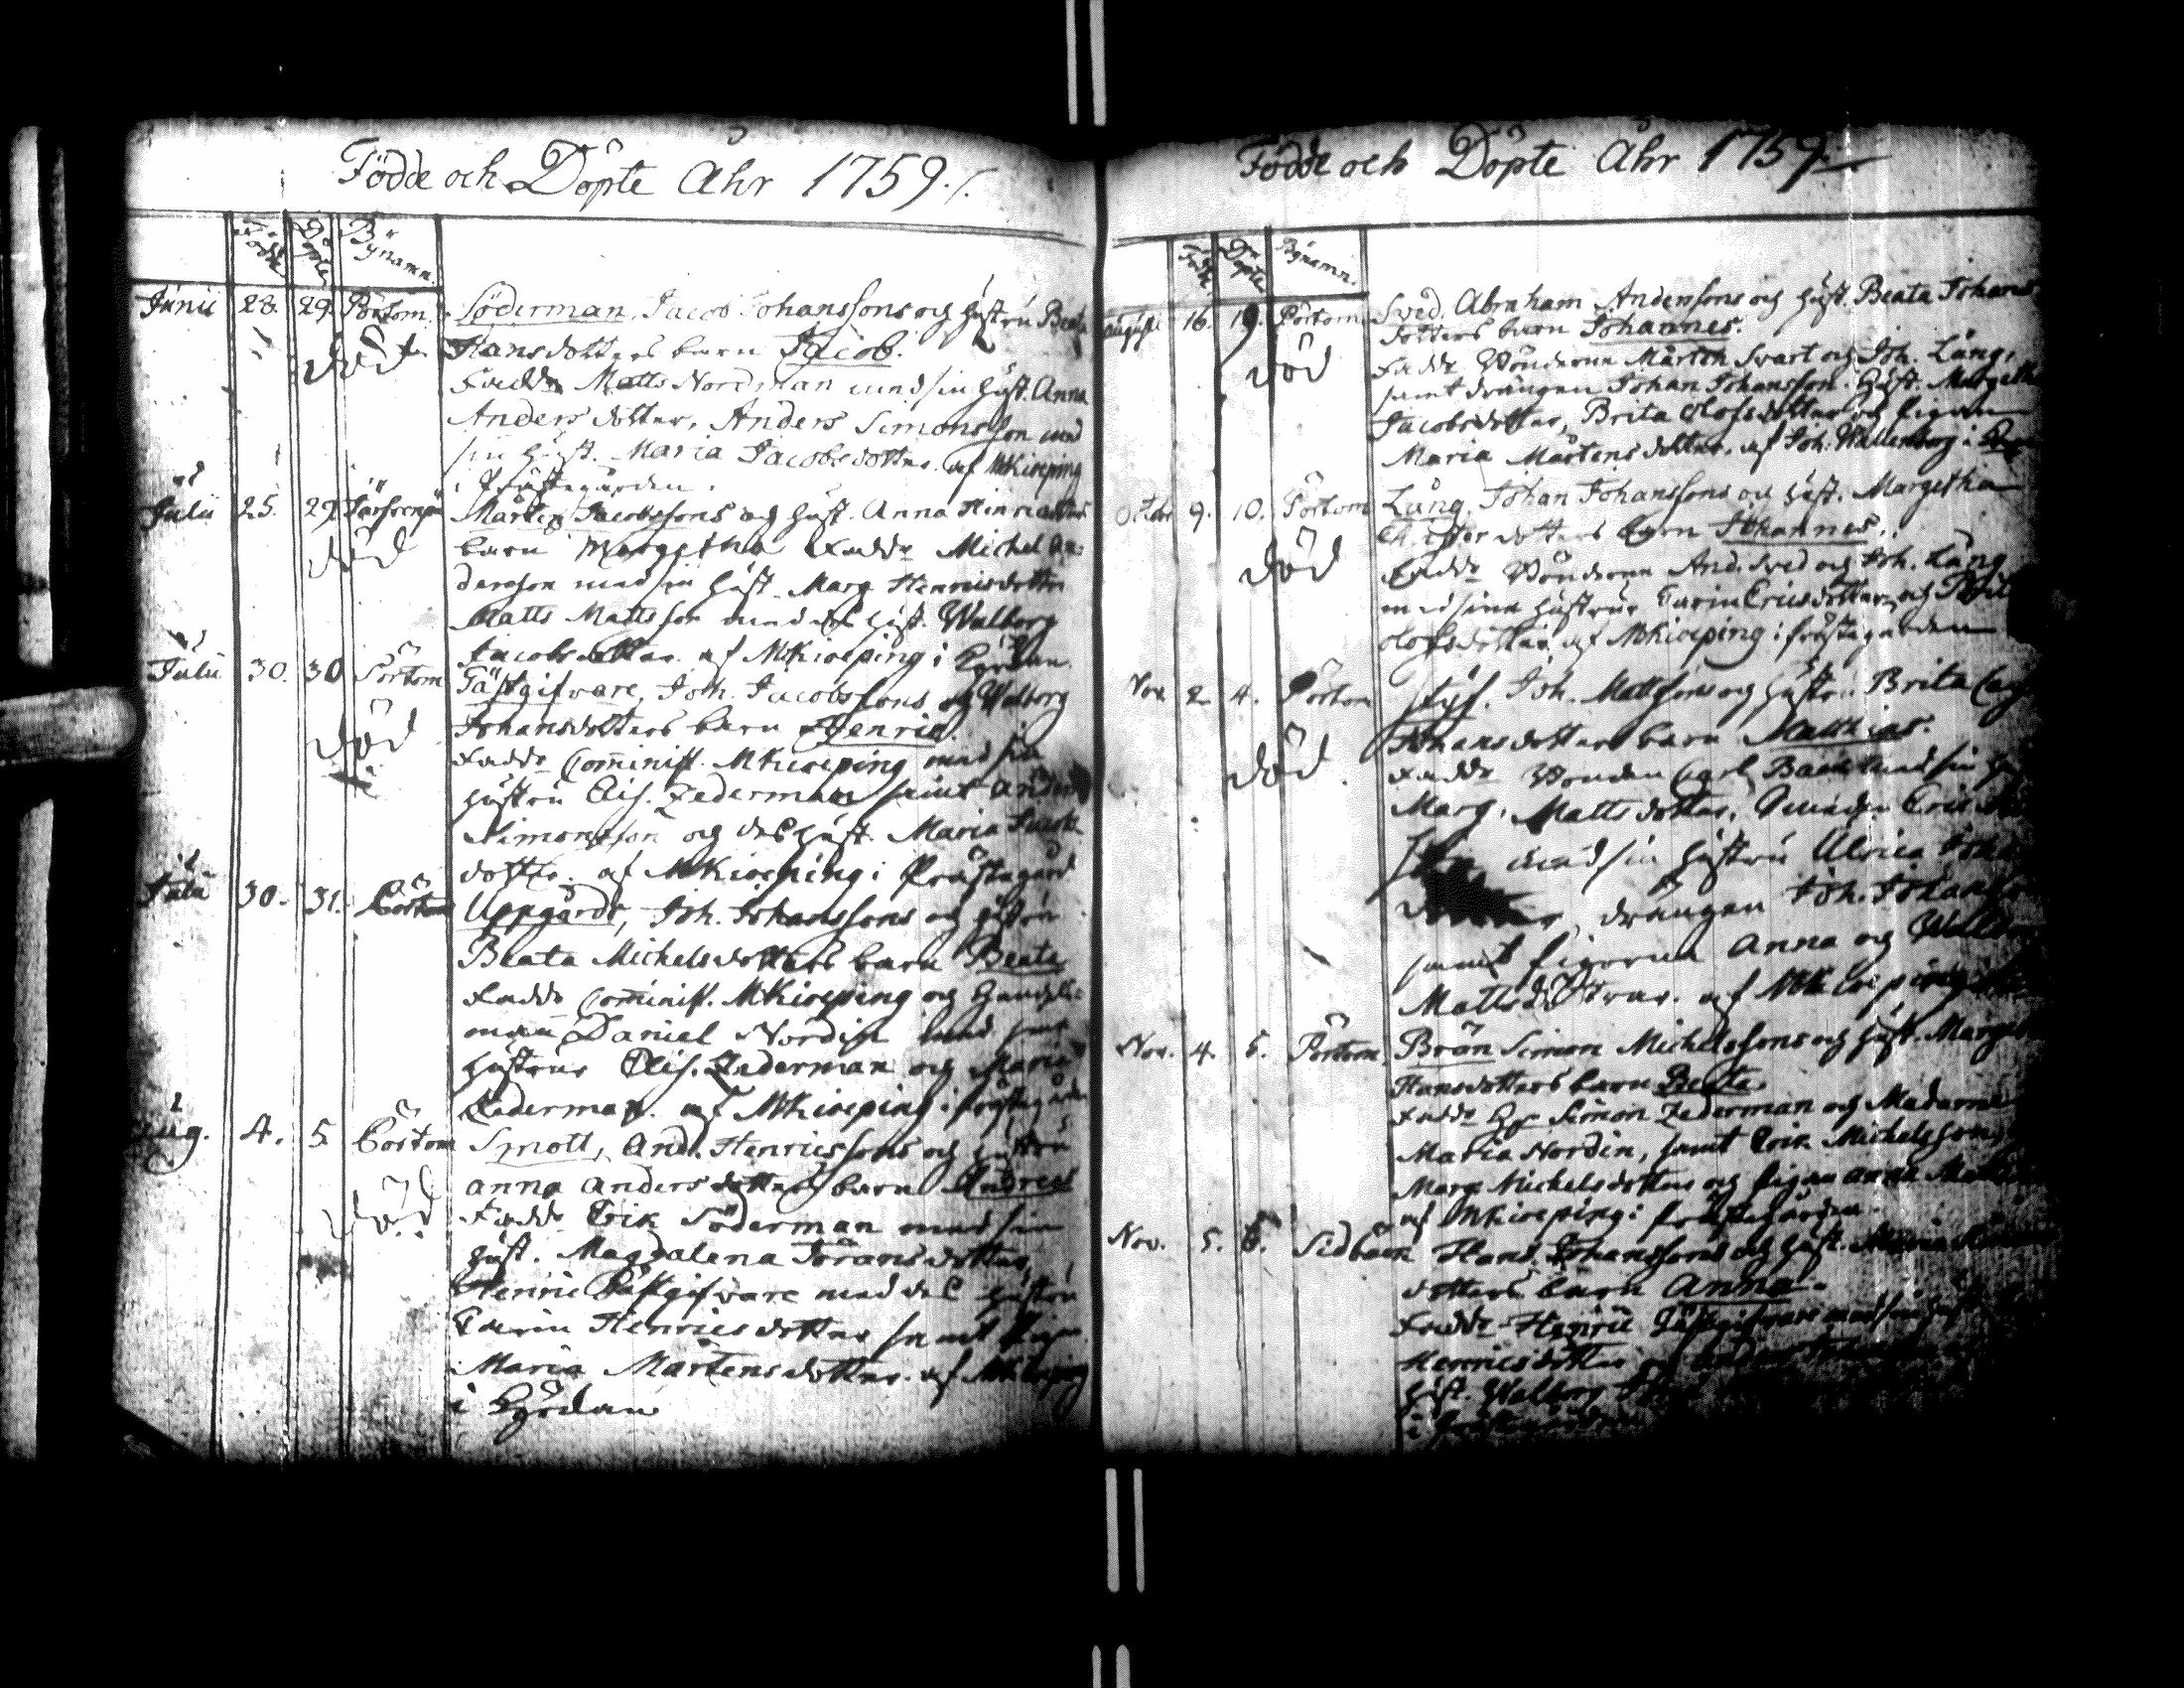 Födde och Döpte Åhr 1759.
Födde Döpte Bynamn
Junii 28. 29. Pörtom Söderman, Jacob Johanssons och hustru Beata
död Hansdotters barn Jacob.
Faddr Matts Nordman med sin hust. Anna
Anders dotter, Anders Simonsson med
sin hust. Maria Jacobsdotter. af MKiœping
i Prästegården.
Julii 25. 29. Mårten Jacobssons och hust. Anna Hinric
död barn Margetha Faddr Michel An-
dersson med sin hust. Marg Henricsdotter
Matts Mattsson med des hust. Walborg
Jacobsdotter. af MKiœping i Kyrkan.
Julii 30. 30 Pörtom Gästgifvare, Joh. Jacobssons och Walborg
död Johansdotters barn Henric.
Faddr Com̄inist. MKiœping med sin
hustru Elis. Zederman samt Anders
Simonsson och des hust. Maria Jacobs
dotter. af MKiœping i Prästegård
Julii 30. 31. Pörtom Uppgårds, Joh. Johanssons och hustru
Beata Michelsdotters barn Beata
Faddr Com̄inist. MKiœping och Handels-
man Daniel Nordin med sine
hustrur Elis. Zederman och Maria
Zederman. af MKiœping i prästegården
Aug. 4. 5. Pörtom Smått, And. Henricssons och hustru
anna anders dotters barn Andreas
död Faddr Erik Söderman med sin
hust. Magdalena Göransdotter
Henric Gästgifvare med des hustru
Carin Henricsdotter samt pigan
Maria Mårtensdotter. af MKiœping
i Kyrkan
Födde och Döpte Åhr 1759.
Födde Döpte Bynamn
August 16. 19. Pörtom Sved, Abraham Anderssons och hust. Beata Johans
dotters barn Johannes.
död Faddr Bönderna Mårten Svart och Joh. Lång,
samt drängen Johan Johansson. Hust. Margetha
Jacobsdotter, Brita Olofsdotter och pigan
Maria Mårtensdotter. af Joh. Wallenborg i
Octobr 9. 10. Pörtom Lång, Johan Johanssons och hust. Margetha
Christersdotters barn Johannes.
död Faddr Bönderna And. Sved och Joh. Lång
med sina hustrur Carin Ericsdotter och Brit
Olofsdotter af MKiœping i prästegården
Nov. 2 4. Pörtom Joh. Mattssons och hustru Brita
Johansdotters barn Matthias.
död. Faddr Bonden Carl med sin
Marg. Mattsdotter, Eric
med sin hustru Ulrica Joh
drängen Joh. Johansson
samt pigorna Anna och
Mattsdöttrar. af MKiœping
Nov. 4. 5. Pörtom Brän Simon Michelssons och hust. Marget
Hansdotters barn Beata.
Faddr Hr Simon Zederman och Madame
Maria Nordin, samt Erik Michelsson,
Marg Michelsdotter och pigan anna
af MKiœping i prästegården.
Nov. 5. 6. Sidbäck Hans Johanssons och hust.
dotters barn Anna.
Faddr Henric Gästgifvare med sin hust
Henricsdotter
hust. Walborg